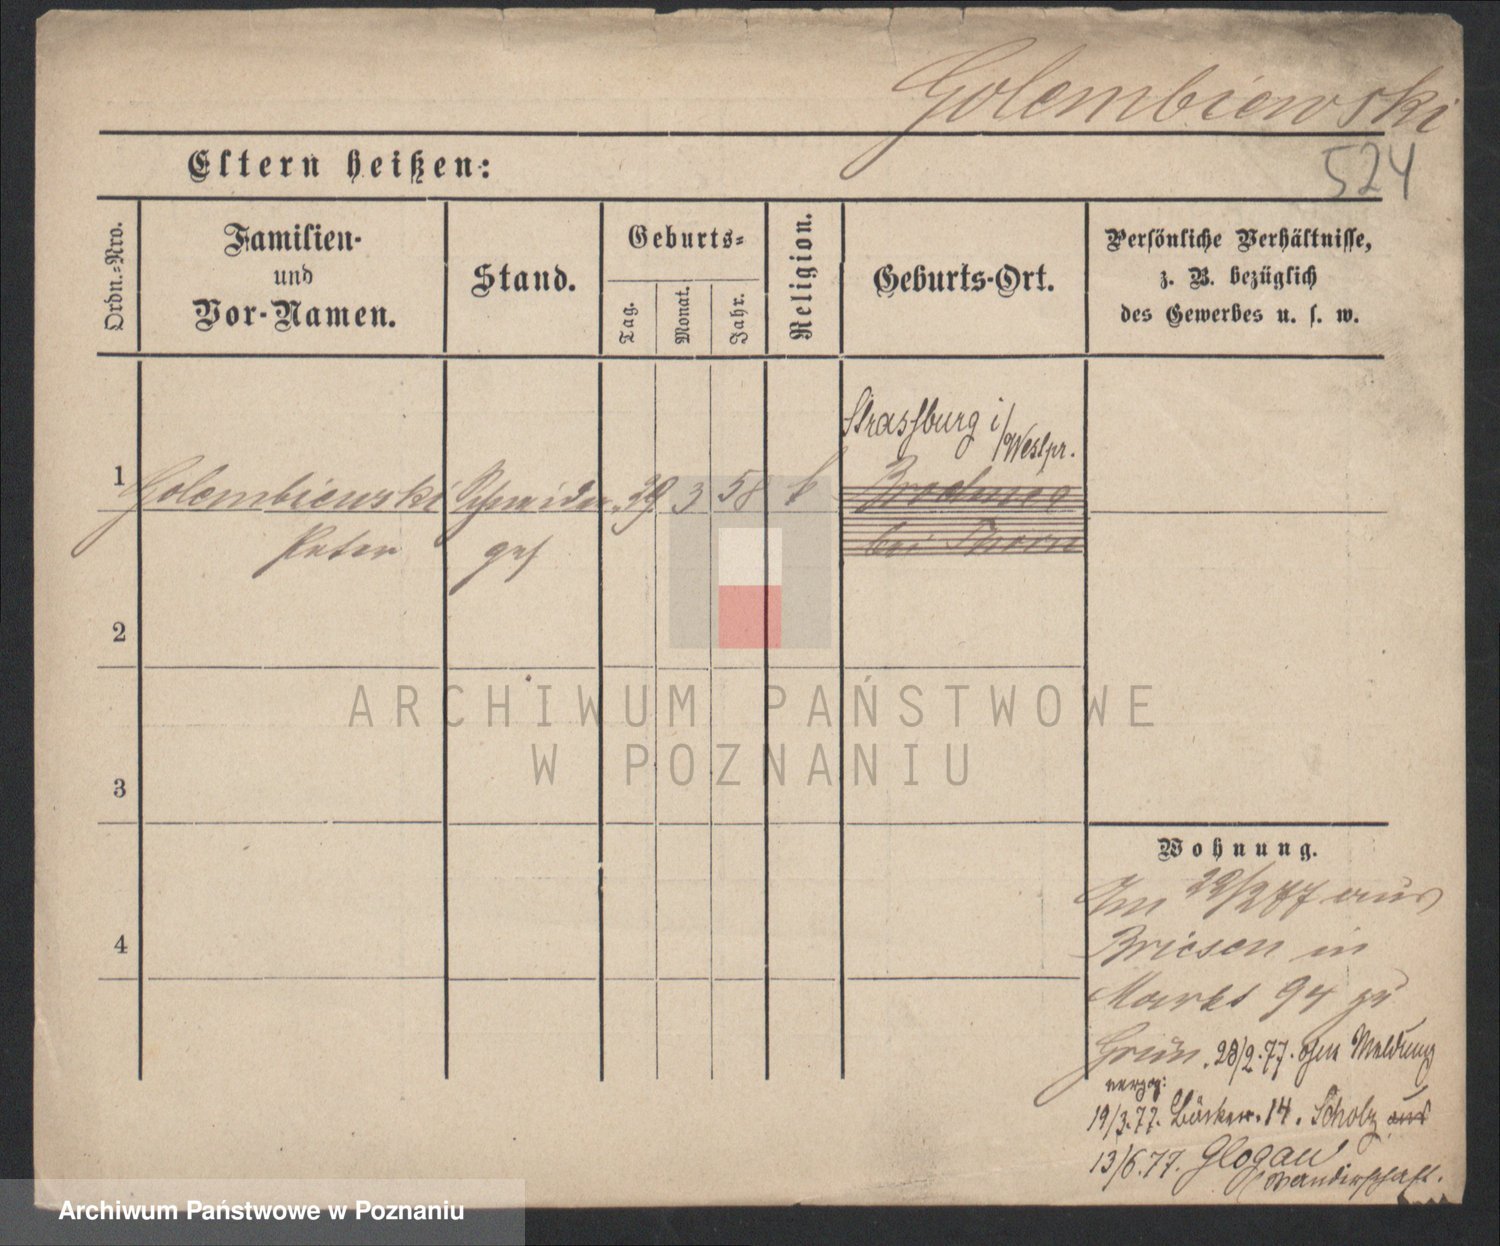 Golembiewski
524
Eltern heißen:
Ordn.-Nro.
Familien-
und
Vor-Namen.
Stand.
Geburts-
Tag.
Monat.
Jahr.
Religion.
Geburts-Ort.
Persönliche Verhältnisse,
z. B. bezüglich
des Gewerbes u. s. w.
Strassburg i/Westpr.
1 Golembiewski Schneider 29 3 58 k
Peter ges
bei Thorn
2
3
4
Wohnung.
Im 22/2 77 aus
Briesen in
Markt 94 zu
Grün. 28/2.77. ohne Meldung
verzg:
19/3.77. Bäcker. 14. Scholz aus
13/6.77. Glogau
Wanderschaft.
ARCHIWUM PAŃSTWOWE
W POZNANIU
Archiwum Państwowe w Poznaniu